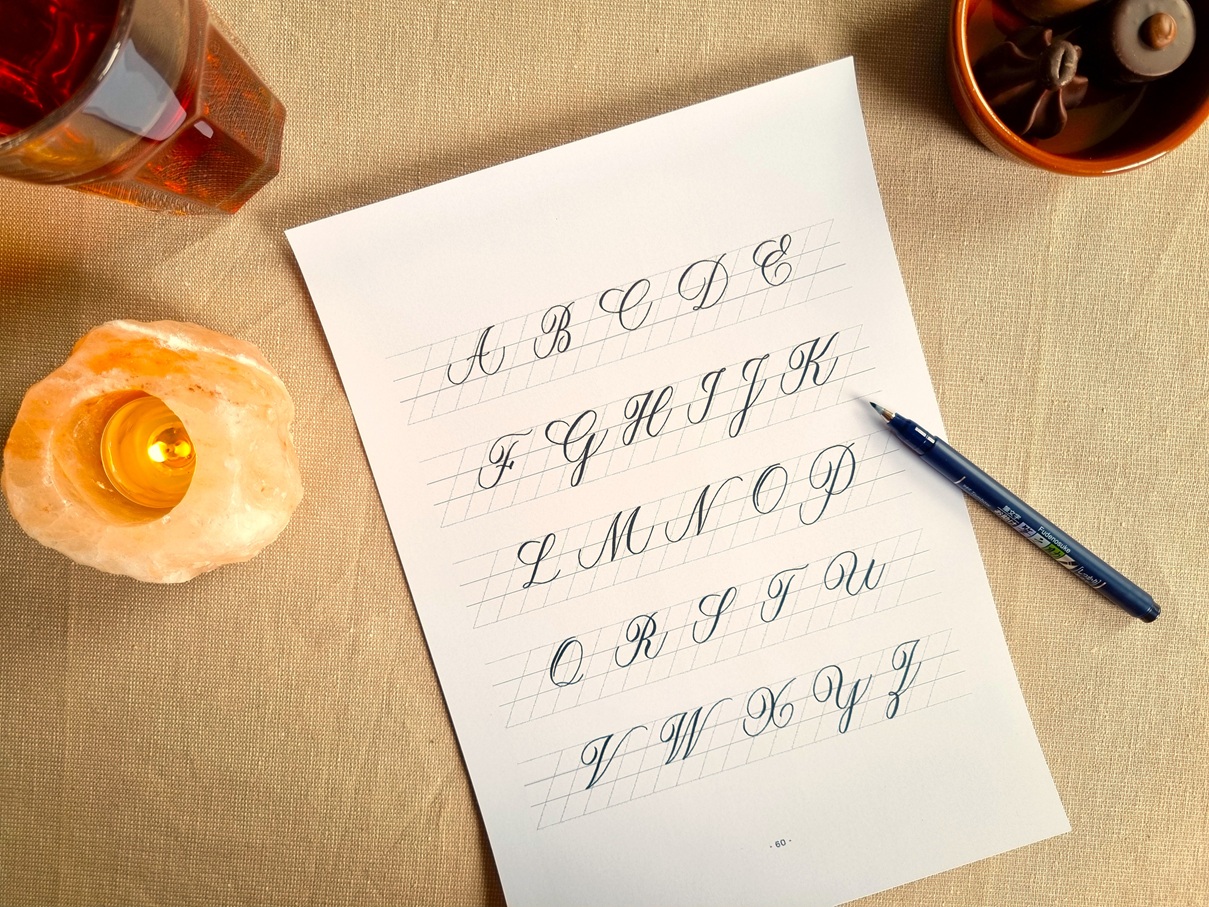 A B C D E
F G H I J K
L M N O P
Q R S T U
V W X Y Z
- 60 -
Fudenosuke